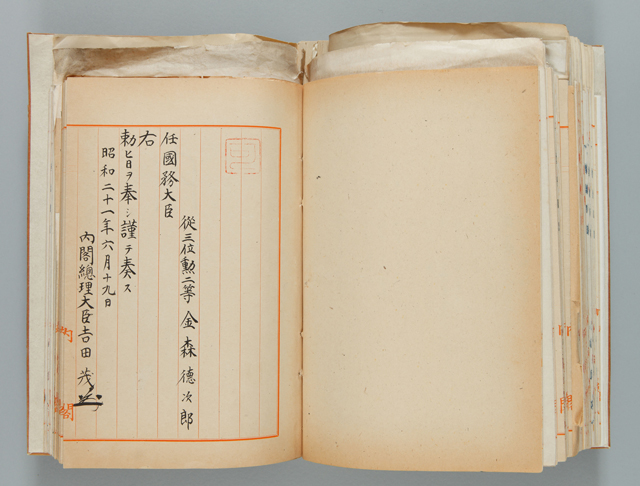 從三位勲二等 金森德次郎
任國務大臣
右
勅旨ヲ奉シ謹テ奏ス
昭和二十一年六月十九日
內閣總理大臣吉田茂
內
閣